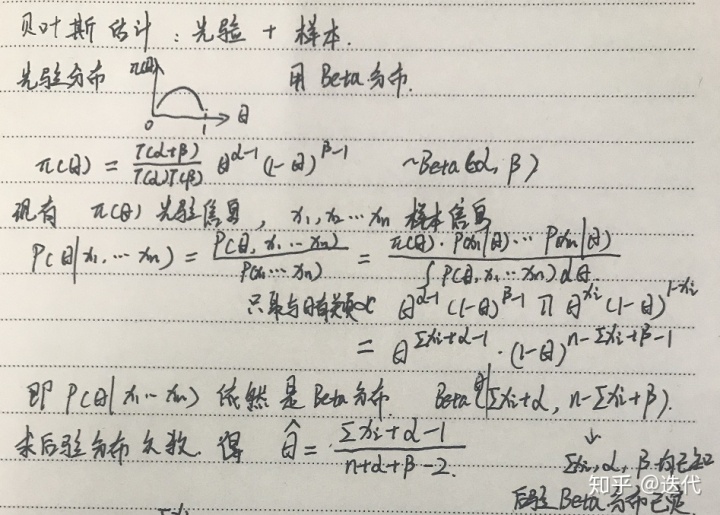 贝叶斯估计：先验 + 样本.
先验分布 π(θ) 0 1 θ 用 Beta 分布.
π(θ) = Γ(α+β)/Γ(α)Γ(β) θ^{α-1} (1-θ)^{β-1} ~Beta(α, β)
现有 π(θ) 先验信息, x₁, x₂ … xₙ 样本信息
P(θ|x₁, … xₙ) = P(θ, x₁ … xₙ)/P(x₁ … xₙ) = π(θ)·P(x₁|θ) … P(xₙ|θ)/∫P(θ, x₁ … xₙ)dθ
∝ θ^{α-1} (1-θ)^{β-1} Π θ^{xᵢ} (1-θ)^{1-xᵢ}
= θ^{Σxᵢ+α-1} · (1-θ)^{n-Σxᵢ+β-1}
即 P(θ|x₁ … xₙ) 依然是 Beta 分布. Beta(θ|Σxᵢ+α, n-Σxᵢ+β).
求后验分布众数. 得 θ̂ = Σxᵢ+α-1/n+α+β-2. ↓
Σxᵢ, α, β 均已知
后验 Beta 分布已定
知乎 @迭代